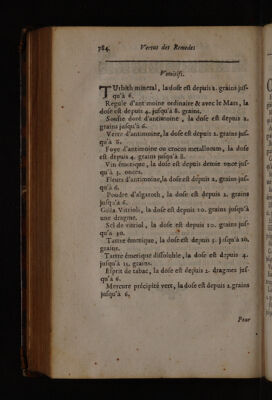 784. Vertus des Remedes
Vomitifs.
TUrbith mineral, la dose est depuis 2. grains jus-
qu'à 6.
Regule d'antimoine ordinaire & avec le Mars, la
dose est depuis 4. jusqu'à 8. grains.
Soufre doré d'antimoine, la dose est depuis 2.
grains jusqu'à 6.
Verre d'antimoine, la dose est depuis 2. grains jus-
qu'à 6.
Foye d'antimoine ou crocus metallorum, la dose
est depuis 4. grains jusqu'à 8.
Vin émetique, la dose est depuis demie once jus-
qu'à 3. onces.
Fleurs d'antimoine, la dose est depuis 2. grains jus-
qu'à 6.
Poudre d'algaroth, la dose est depuis 2. grains
jusqu'à 6.
Gilla Vitrioli, la dose est depuis 10. grains jusqu'à
une dragme.
Sel de vitriol, la dose est depuis 10. grains jus-
qu'à 30.
Tartre émetique, la dose est depuis 5. jusqu'à 10.
grains.
Tartre émetique dissoluble, la dose est depuis 4.
jusqu'à 15. grains.
Esprit de tabac, la dose est depuis 2. dragmes jus-
qu'à 6.
Mercure précipité vert, la dose est depuis 2. grains
jusqu'à 6,
Pour